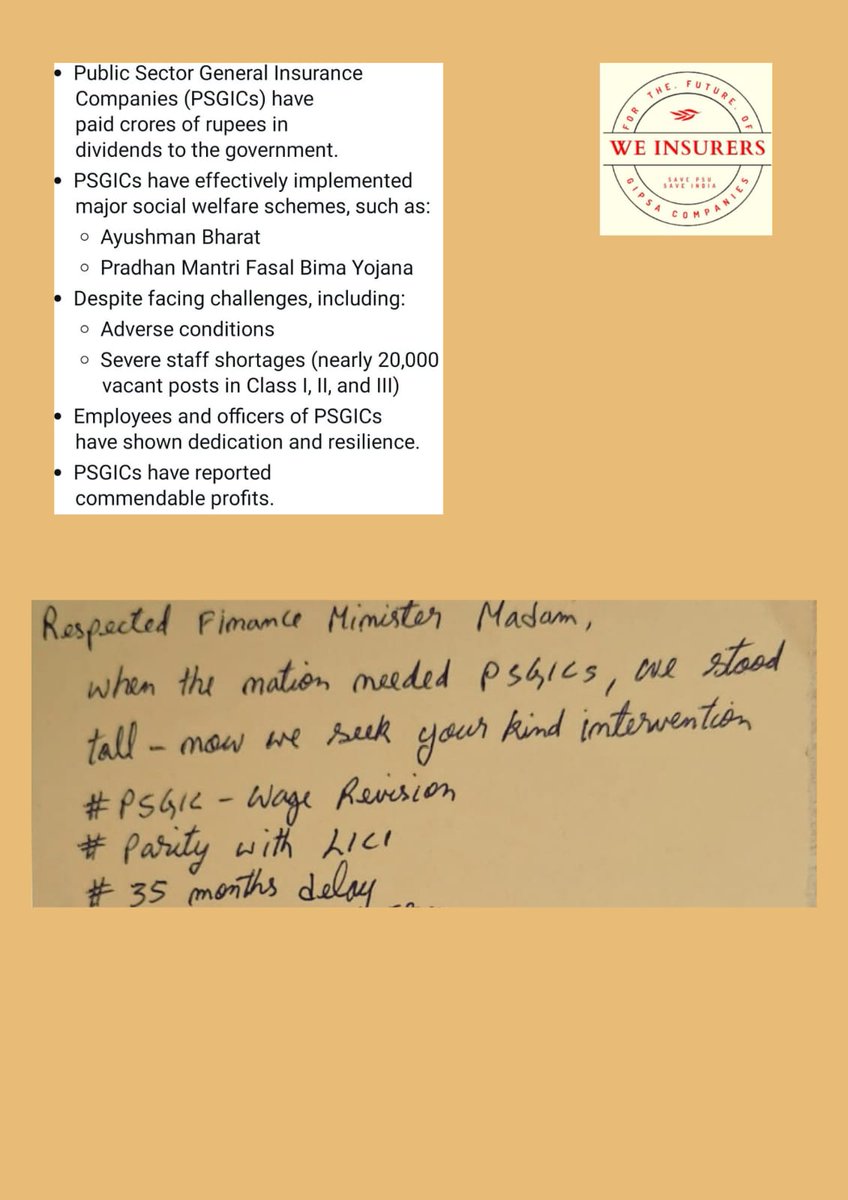 • Public Sector General Insurance
Companies (PSGICs) have
paid crores of rupees in
dividends to the government.
• PSGICs have effectively implemented
major social welfare schemes, such as:
○ Ayushman Bharat
○ Pradhan Mantri Fasal Bima Yojana
• Despite facing challenges, including:
○ Adverse conditions
○ Severe staff shortages (nearly 20,000
vacant posts in Class I, II, and III)
• Employees and officers of PSGICs
have shown dedication and resilience.
• PSGICs have reported
commendable profits.
FOR THE. FUTURE. OF
WE INSURERS
SAVE PSU
SAVE INDIA
GIPSA COMPANIES
Respected Finance Minister Madam,
when the nation needed PSGICs, we stood
tall - now we seek your kind intervention
# PSGIC - Wage Revision
# Parity with LICI
# 35 months delay